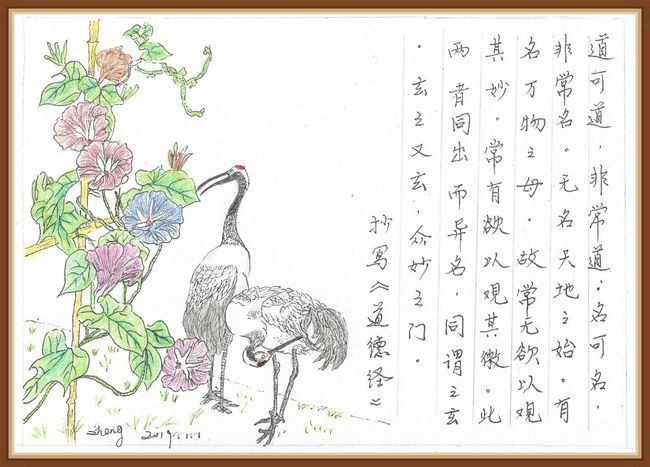 道可道，非常道；名可名，
非常名。无名天地之始。有
名万物之母。故常无欲以观
其妙。常有欲以观其徼。此
两者同出而异名，同谓之玄
。玄之又玄，众妙之门。
抄写《道德经》
sheng 2019.1.1